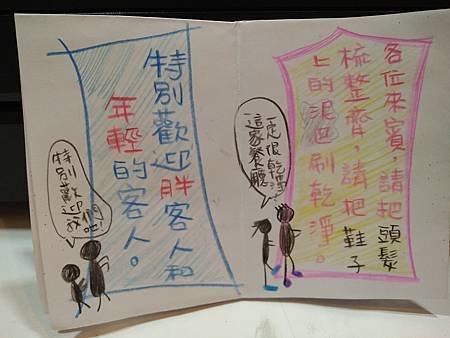 各位來賓,請把頭髮
梳整齊,請把鞋子
上的泥巴刷乾淨。
這家餐廳
一定很乾淨!
特別歡迎胖客人和
年輕的客人。
特別歡迎
我們吧!